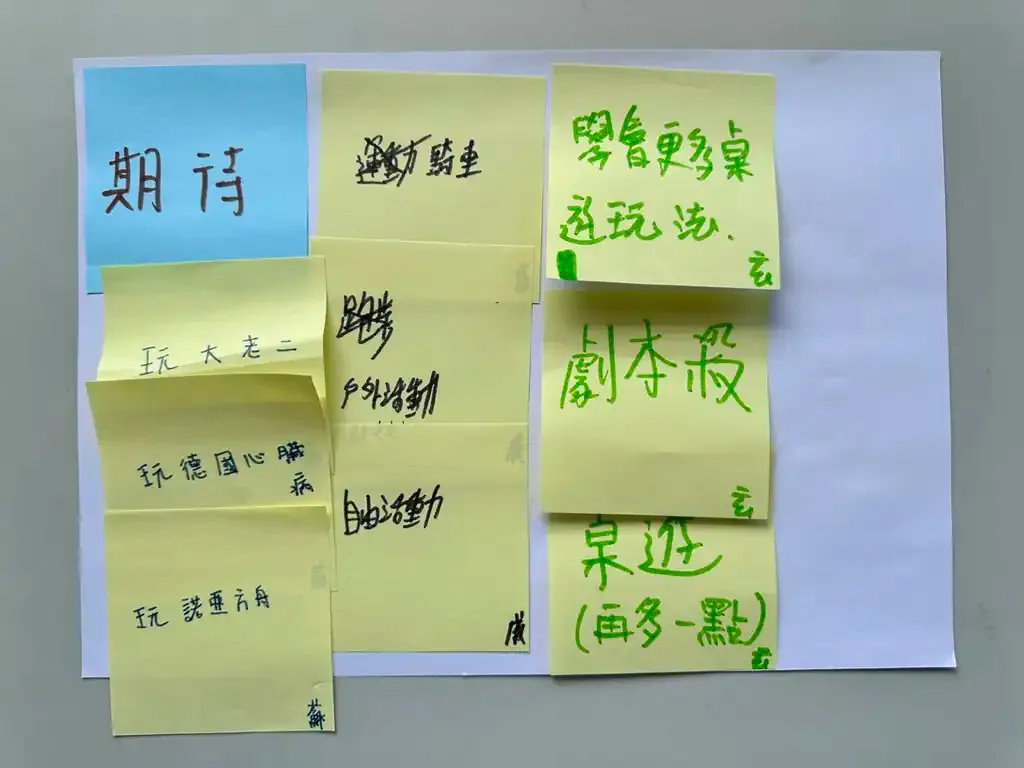 期待
玩大老二
玩德國心臟
病
玩諾亞方舟
蘇
運動騎車
跑
戶外活動
自由活動
學會更多桌
遊玩法.
玄
劇本殺
玄
桌遊
(再多一點)
玄